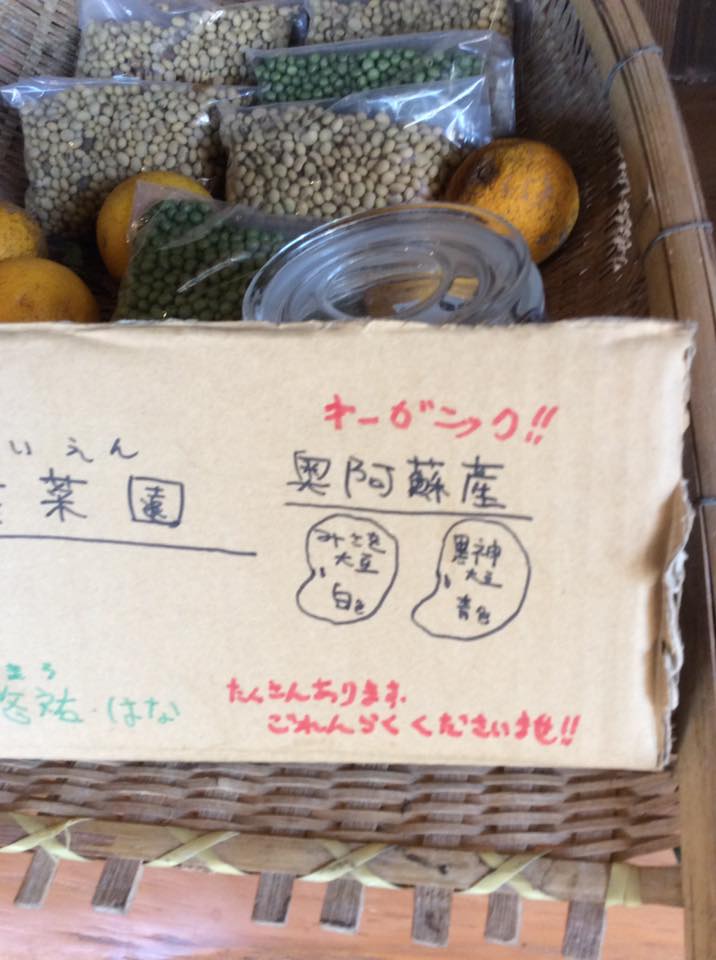 オーガニック!!
いえん
菜園
奥阿蘇産
みさを
大豆
白色
黒神
大豆
青色
まろ
悠祐・はな
たくさんあります。
ごれんらくくださいませ!!